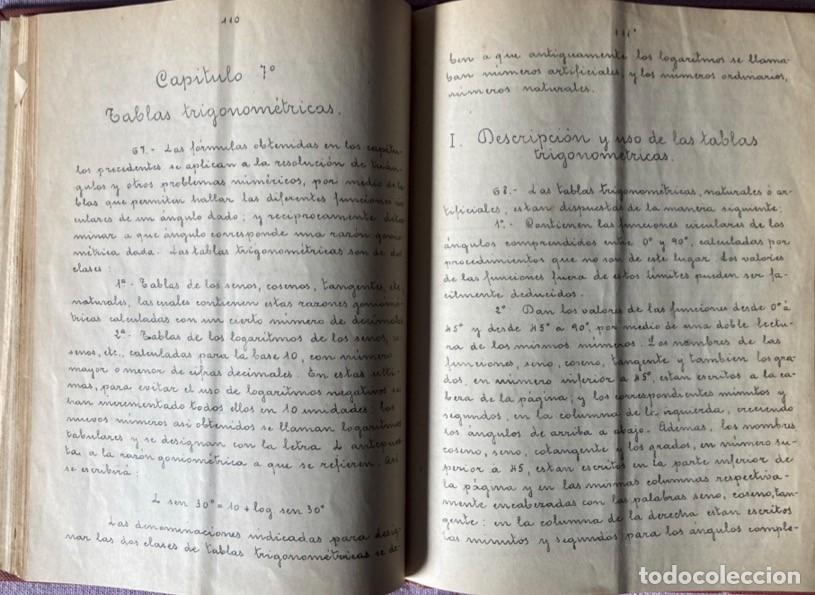 110
Capitulo 7º
Tablas trigonométricas.
67.- Las fórmulas obtenidas en los capitu-
los precedentes se aplican a la resolución de trián-
gulos y otros problemas numéricos, por medio de ta-
blas que permiten hallar las diferentes funciones cir-
culares de un ángulo dado; y reciprocamente deter-
minar a que ángulo corresponde una razón gonio-
métrica dada. Las tablas trigonométricas son de dos
clases:
1ª- Tablas de los senos, cosenos, tangentes, etc.
naturales, las cuales contienen estas razones goniomé-
tricas calculadas con un cierto número de decimales
2ª- Tablas de los logaritmos de los senos, co-
senos, etc., calculadas para la base 10, con número
mayor o menor de cifras decimales. En estas ulti-
mas, para evitar el uso de logaritmos negativos se
han incrementado todos ellos en 10 unidades: los
nuevos números asi obtenidos se llaman logaritmos
tabulares y se designan con la letra L antepues-
ta, a la razón goniométrica a que se refieren. Asi
se escribirá:
L sen 30° = 10 + log sen 30°
Las denominaciones indicadas para desig-
nar las dos clases de tablas trigonométricas se de-
111
ben a que antiguamente los logaritmos se llama-
ban números artificiales, y los números ordinarios,
números naturales.
I. Descripción y uso de las tablas
trigonométricas.
68.- Las tablas trigonométricas, naturales ó ar-
tificiales, estan dispuestas de la manera siguiente:
1º- Contienen las funciones circulares de los
ángulos comprendidos entre 0° y 90°, calculadas por
procedimientos que no son de este lugar. Los valores
de las funciones fuera de estos limites pueden ser fa-
cilmente deducidos.
2º Dan los valores de las funciones desde 0° á
45° y desde 45° a 90°, por medio de una doble lectu-
ra de los mismos números. Los nombres de las
funciones, seno, coseno, tangente y tambien los gra-
dos, en número inferior a 45°, estan escritos a la ca-
bera de la página; y los correspondientes minutos y
segundos, en la columna de la izquierda, creciendo
los ángulos de arriba a abajo. Ademas, los nombres
coseno, seno, cotangente y los grados, en número su-
perior á 45, estan escritos en la parte inferior de
la página y en las mismas columnas respectiva-
mente encabezadas con las palabras seno, coseno, tan-
gente: en la columna de la derecha estan escritos
los minutos y segundos para los ángulos comple-
todocoleccion